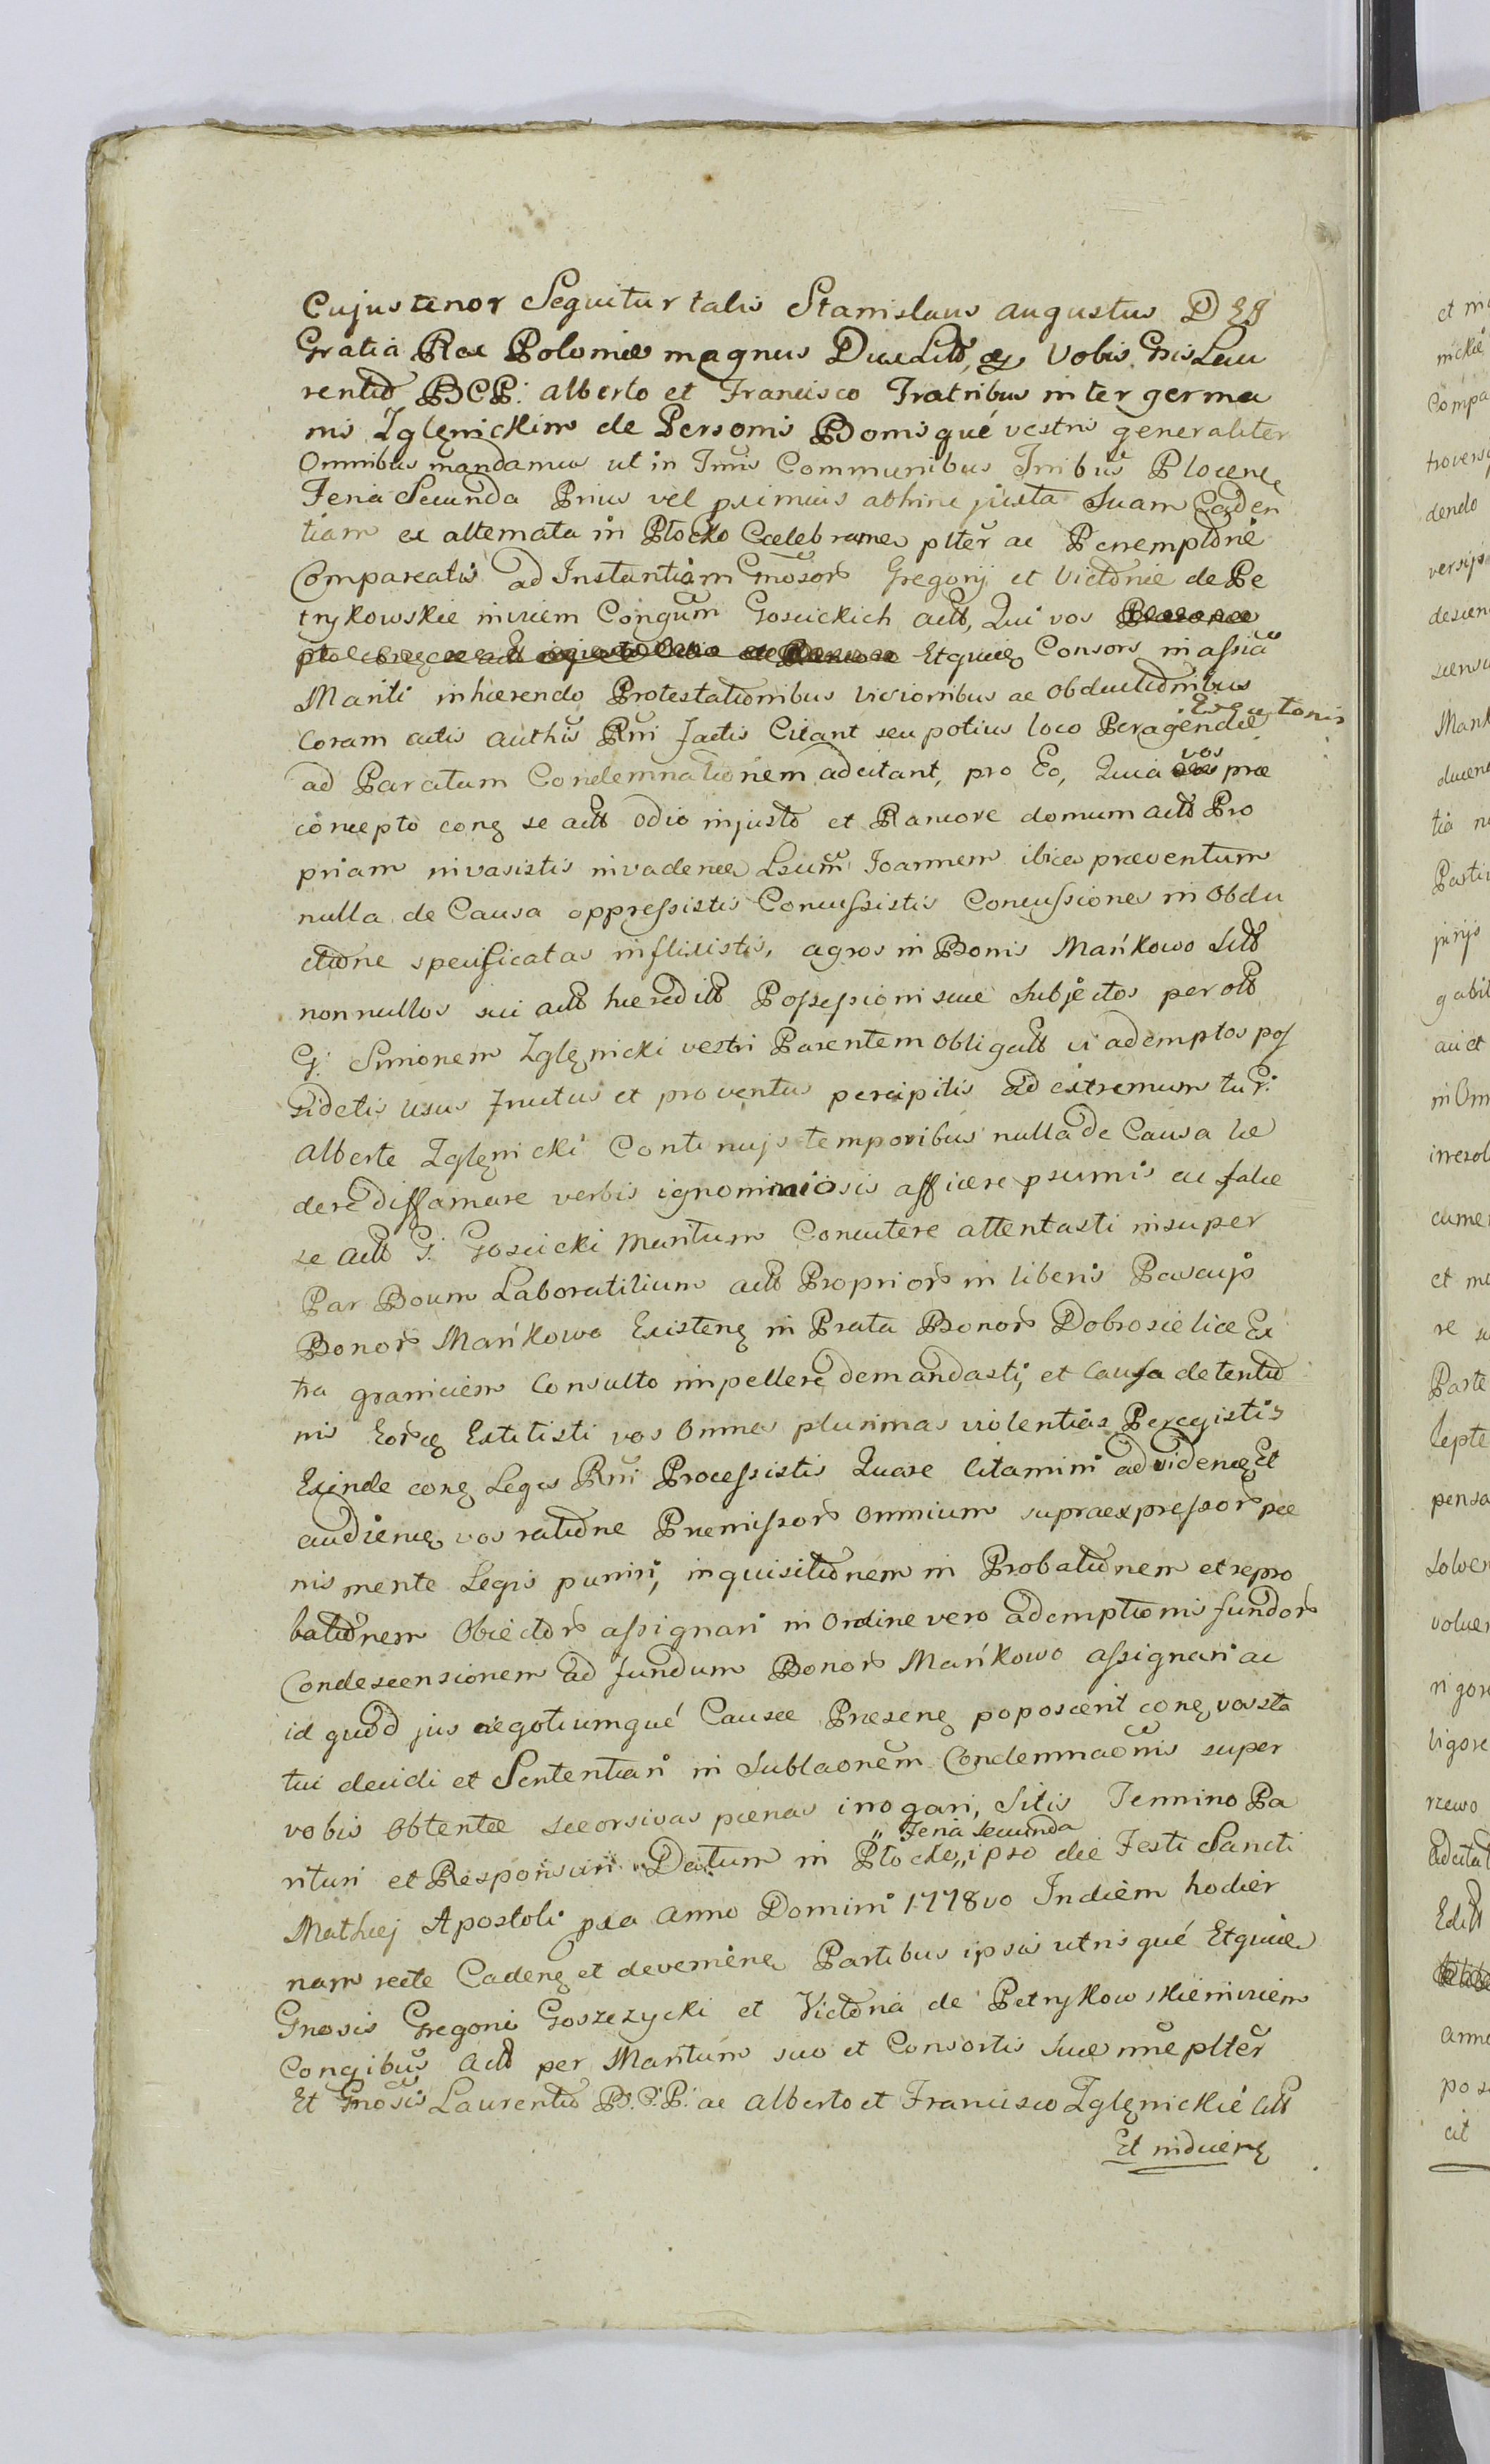 Cujus tenor Sequitur talis Stanislaus Augustus DEI
Gratia Rex Poloniæ magnus Dux Litt, &c Vobis Gsis Lau
rentio B.C.P: Alberto et Francisco Fratribus inter germa
nis Zglęnickim de Personis Bonisqué vestris generaliter
Omnibus mandamus ut in Tmis Communibus Tribus Plocen
Feria Secunda Prius vel proximius abhinc juxta Suam Caden
tiam ex alternata in Płocko Celebrane plter ac Peremptorie
Compareatis ad Instantiam Gnosor Gregorij et Victoriæ de Pe
trykowskie invicem Congum Goscickich actt, Qui vos
Etquidę Consors in assiã
Mariti inhærendo Protestationibus Visionibus ac Obductionibus
Coram actis Authis Rni factis Citant seu potius loco Peragendæ Executionis
ad Paratam Condemnationem adcitant, pro Eo, Quia vos præ
concepto conę se actt odio injusto et Rancore domum actt Pro
priam invasistis invadenę Lsum Joannem ibię præventum
nulla de Causa oppressistis Concussistis Concussiones in Obdu
ctione specificatas inflixistis, agros in Bonis Mańkowo Sitt
nonnullos sui actt hæreditt Possessioni suæ Subjectos per olt
G: Simonem Zglęnicki vestri Parentem Obligatt vi ademptos pos
sidetis Usus fructus et proventus percipitis Ad extremum tu G:
Alberte Zglęnicki Continujs temporibus nulla de Causa læ
dere diffamare verbis ignominiosis afficere psumis ac
se actt G: Goscicki Maritum Concutere attentasti insuper
Par Boum Laboratilium actt Proprior in liberis Pascujs
Bonor Mańkowo Existenę in Prata Bonor Dobrosielice Ex
tra graniciem Consulto impellere demandasti, et Causa detentio
nis Eorę Extitisti vos Omnes plurimas violentias Peregistis
Exinde conę Leges Rni Processistis Quare Citamini ad videnę Et
audienę vos ratione Præmissor Omnium supraexpressor pæ
nis mente Legis puniri, inquisitionem in Probationem et repro
bationem Objector assignari in Ordine vero ademptionis fundor
Condescensionem Ad fundum Bonor Mańkowo assignari ac
id quod jus negotiumqué Causæ Præsenę poposcerit conę vos sta
tui decidi et Sententiari in Sublaonem Condemnaonis super
vobis Obtentæ seorsivas pænas irrogari, Sitis Termino Pa
rituri et Responsuri Datum in Płocko „Feria Secunda„ ipso die Festi Sancti
Mathæj Apostoli pxa Anno Domini 1778vo In diem hodier
nam recte Cadenę et devenienę Partibus ipsis utrisqué Etquidę
Gnosis Gregorio Goszczycki et Victoria de Petrykowskie invicem
Congibus Actt per Maritum suo et Consortis Suæ nne plter
Et Gnosis Laurentio B.C.P: ac Alberto et Francisco Zglęnickie Citt
Et inducienę